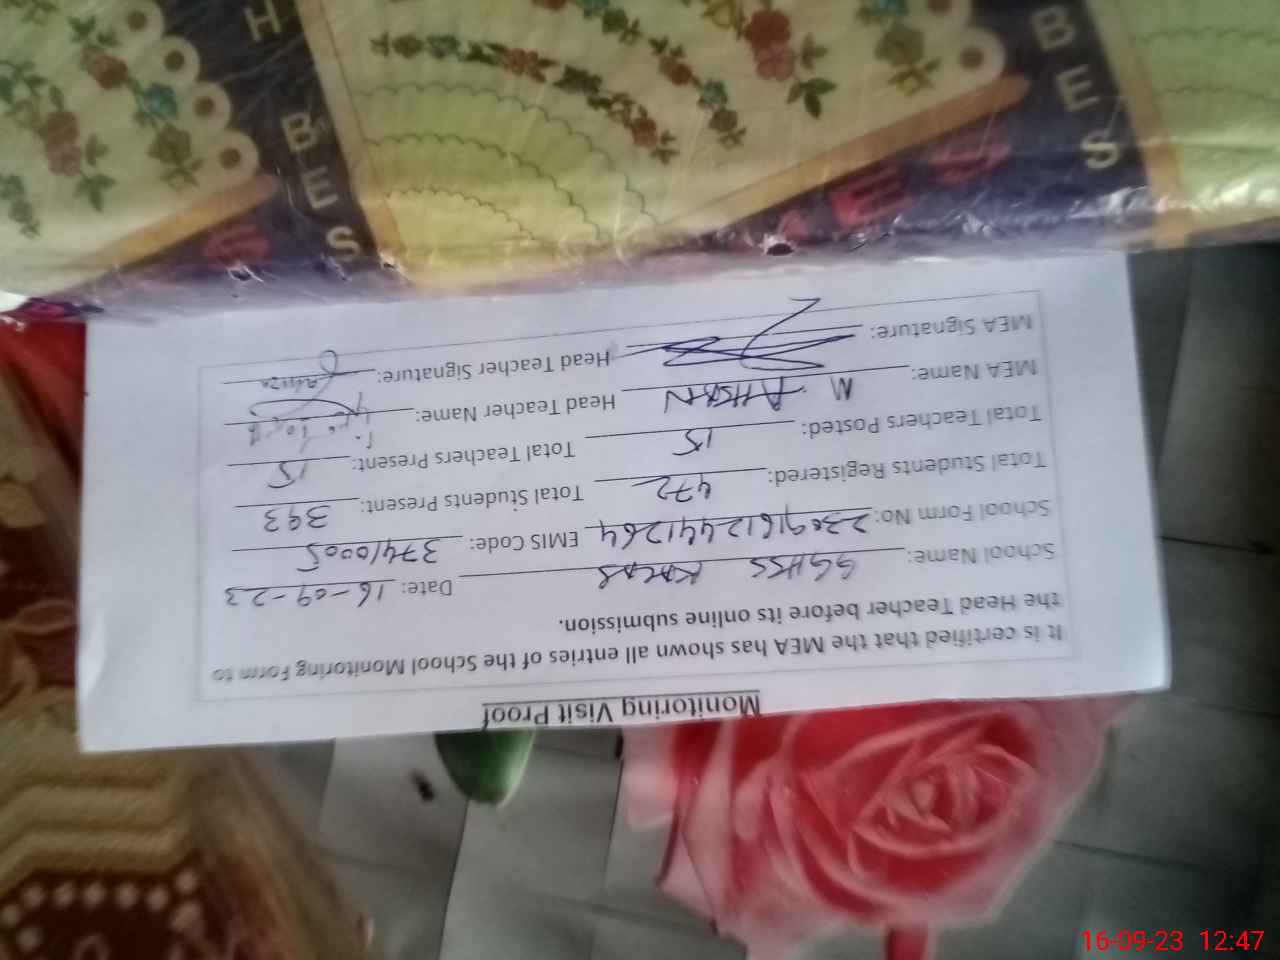 Monitoring Visit Proof
It is certified that the MEA has shown all entries of the School Monitoring Form to
the Head Teacher before its online submission.
School Name: GGHSS Date: 16-09-23
School Form No: 23091612441264 EMIS Code: 37410005
Total Students Registered: 472 Total Students Present: 393
Total Teachers Posted: 15 Total Teachers Present: 15
MEA Name: M AHSAN Head Teacher Name:
MEA Signature: Head Teacher Signature:
H
B
E
S
B
E
S
16-09-23 12:47